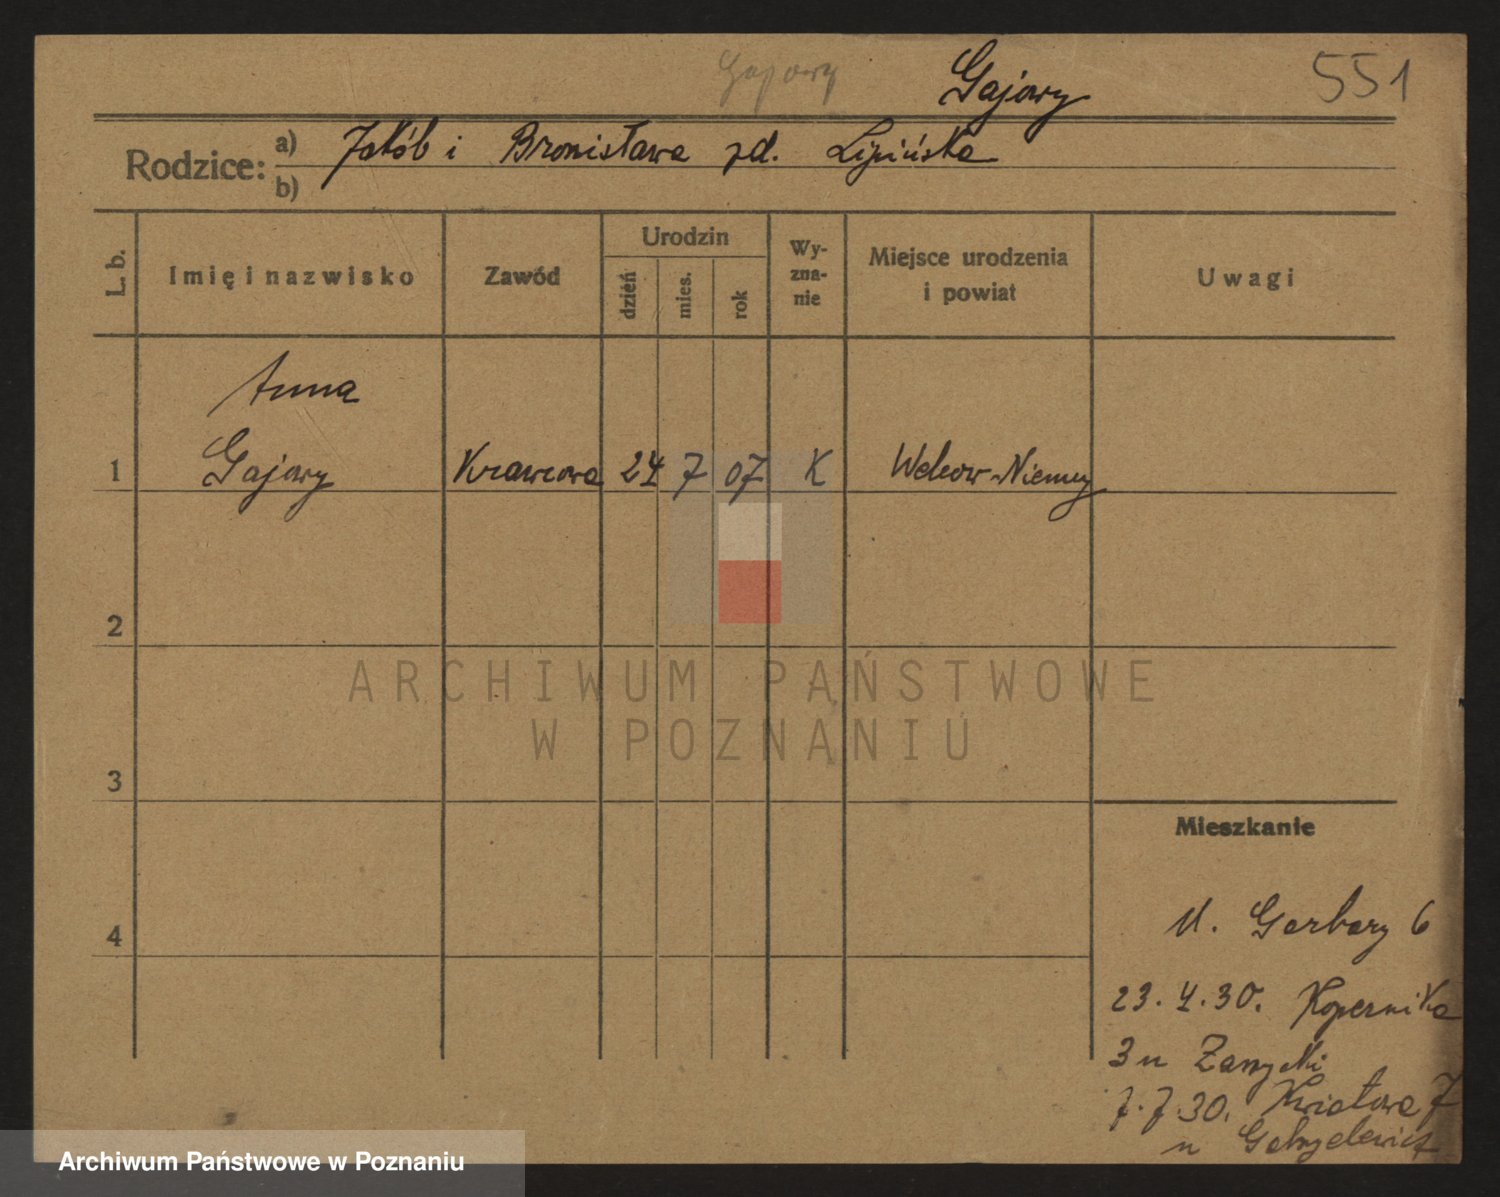 Gajowy Gajowy 551
Rodzice: a) Jakób i Bronisława zd. Lipińska
b)
L. b.
Imię i nazwisko
Zawód
Urodzin
dzień
mies.
rok
Wy-
zna-
nie
Miejsce urodzenia
i powiat
Uwagi
Anna
1 Gajowy Krawcowa 24 7 07 K Niemcy
2
3
4
ARCHIWUM PAŃSTWOWE
W POZNANIU
Mieszkanie
ul. Garbary 6
23.4.30. Kopernika
3 u
7.7.30. Kwiatowa 7
u
Archiwum Państwowe w Poznaniu